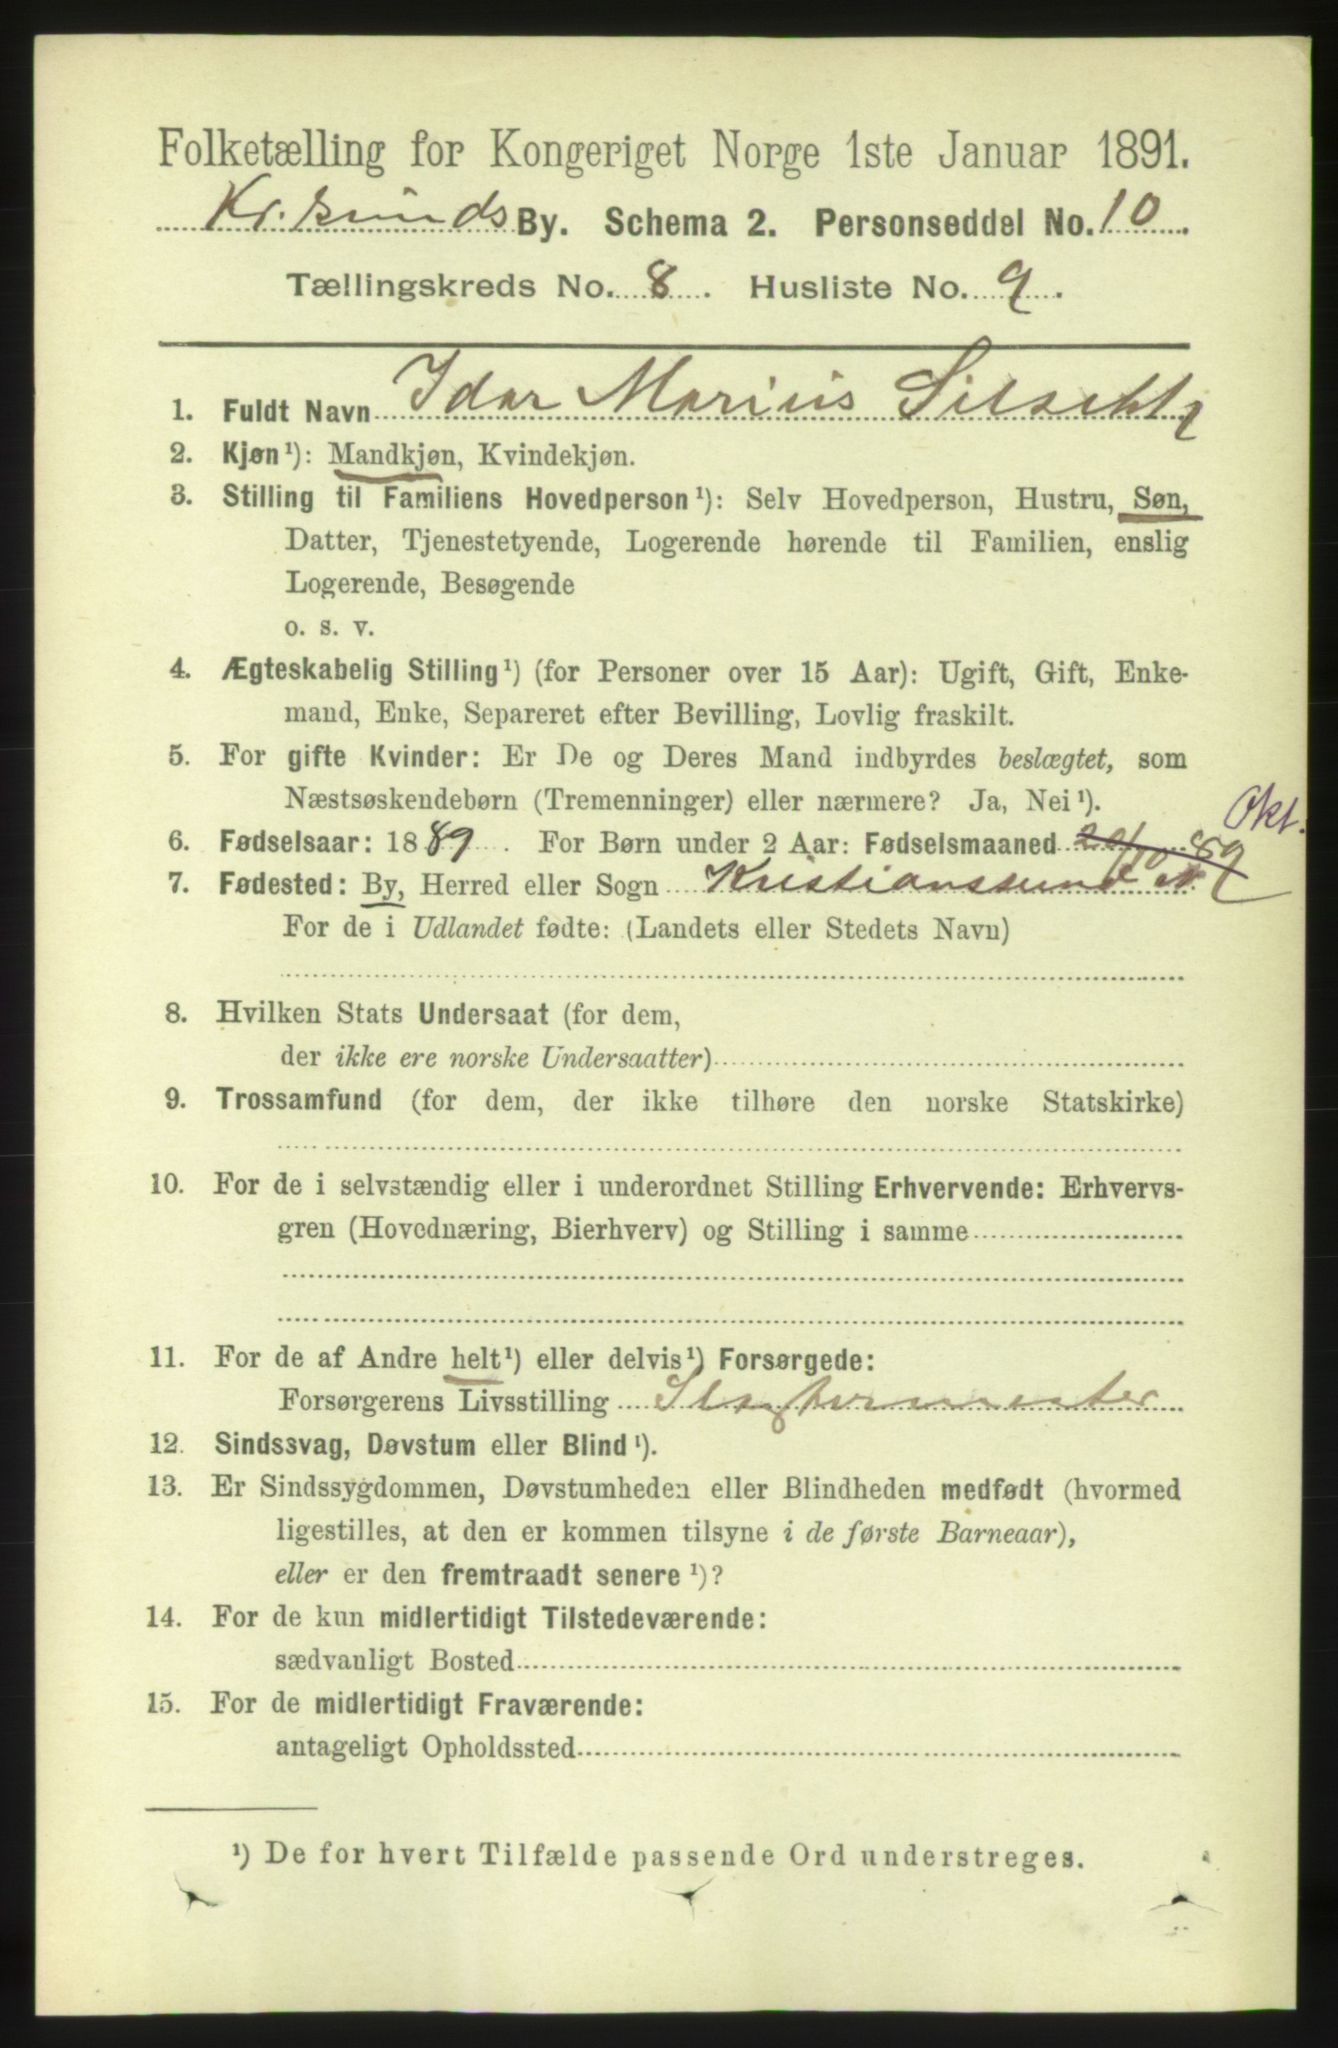 Folketælling for Kongeriget Norge 1ste Januar 1891.
Kr.sunds By. Schema 2. Personseddel No. 10.
Tællingskreds No. 8. Husliste No. 9.
1. Fuldt Navn Idar Marius
2. Kjøn ¹): Mandkjøn, Kvindekjøn.
3. Stilling til Familiens Hovedperson ¹): Selv Hovedperson, Hustru, Søn,
Datter, Tjenestetyende, Logerende hørende til Familien, enslig
Logerende, Besøgende
o. s. v.
4. Ægteskabelig Stilling ¹) (for Personer over 15 Aar): Ugift, Gift, Enke-
mand, Enke, Separeret efter Bevilling, Lovlig fraskilt.
5. For gifte Kvinder: Er De og Deres Mand indbyrdes beslægtet, som
Næstsøskendebørn (Tremenninger) eller nærmere? Ja, Nei ¹).
Okt.
6. Fødselsaar: 1889. For Børn under 2 Aar: Fødselsmaaned 20/10 89
7. Fødested: By, Herred eller Sogn Kristianssund N
For de i Udlandet fødte: (Landets eller Stedets Navn)
8. Hvilken Stats Undersaat (for dem,
der ikke ere norske Undersaatter)
9. Trossamfund (for dem, der ikke tilhøre den norske Statskirke)
10. For de i selvstændig eller i underordnet Stilling Erhvervende: Erhvervs-
gren (Hovednæring, Bierhverv) og Stilling i samme
11. For de af Andre helt ¹) eller delvis ¹) Forsørgede:
Forsørgerens Livsstilling Slagtermester
12. Sindssvag, Døvstum eller Blind ¹).
13. Er Sindssygdommen, Døvstumheden eller Blindheden medfødt (hvormed
ligestilles, at den er kommen tilsyne i de første Barneaar),
eller er den fremtraadt senere ¹)?
14. For de kun midlertidigt Tilstedeværende:
sædvanligt Bosted
15. For de midlertidigt Fraværende:
antageligt Opholdssted
¹) De for hvert Tilfælde passende Ord understreges.